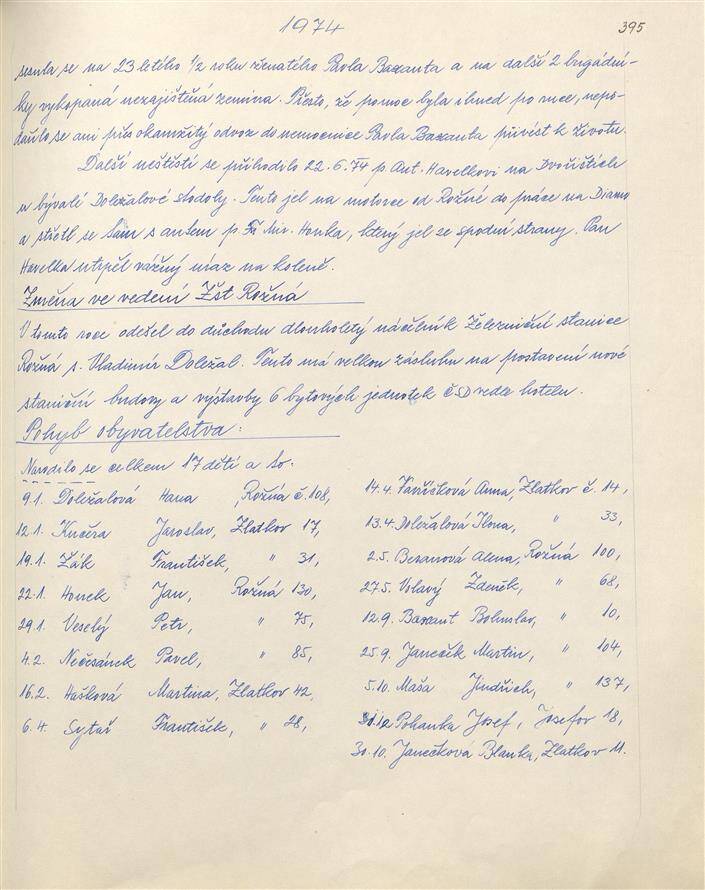 1974
395
sesula se na 23 letého 1/2 roku ženatého Pavla Baxanta a na další 2 brigádní-
ky vykopaná nezajištěná zemina. Přesto, že pomoc byla ihned po ruce, nepo-
dařilo se ani přes okamžitý odvoz do nemocnice Pavla Baxanta přivést k životu.
Další neštěstí se přihodilo 22.6.74 p. Ant. Havelkovi na Dvořištích
u bývalé Doležalové stodoly. Tento jel na motorce od Rožné do práce na Diamo
a střetl se tam s autem p. Mir. Honka, který jel ze spodní strany. Pan
Havelka utrpěl vážný úraz na koleně.
Změna ve vedení Žst Rožná
V tomto roce odešel do důchodu dlouholetý náčelník Železniční stanice
Rožná s. Vladimír Doležal. Tento má velkou zásluhu na postavení nové
staniční budovy a výstavby 6 bytových jednotek ČSD vedle hotelu.
Pohyb obyvatelstva:
Narodilo se celkem 17 dětí a to:
9.1. Doležalová Hana, Rožná č. 108,
12.1. Kučera Jaroslav, Zlatkov 17,
19.1. Žák František, " 31,
22.1. Honek Jan, Rožná 130,
29.1. Veselý Petr, " 75,
4.2. Nečesánek Pavel, " 85,
16.2. Hašková Martina, Zlatkov 42,
6.4. Sytař František, " 28,
14.4. Vavříšková Anna, Zlatkov č. 14,
13.4. Doležalová Ilona, " 33,
2.5. Beranová Alena, Rožná 100,
27.5. Volavý Zdeněk, " 68,
12.9. Baxant Bohuslav, " 10,
25.9. Janeček Martin, " 104,
5.10. Máša Jindřich, " 137,
Pohanka Josef, Josefov 18,
30.10. Janečková Blanka, Zlatkov 11.